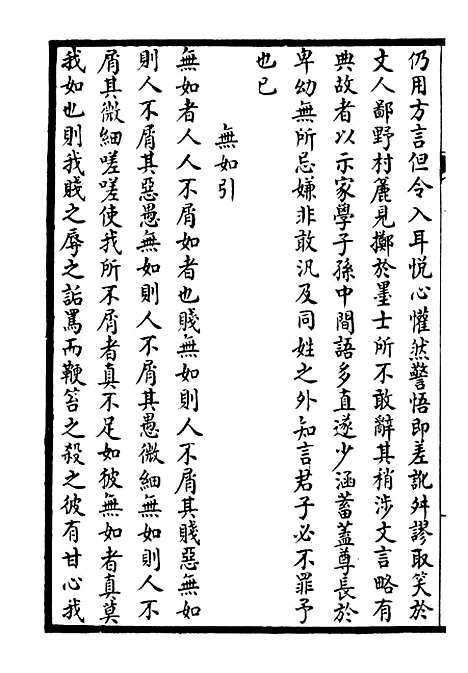 仍用方言但令入耳悅心懽然警悟即差訛舛謬取笑於
文人鄙野村麄見擲於墨士所不敢辭其稍涉文言略有
典故者以示家學子孫中間語多直遂少涵蓄蓋尊長於
卑幼無所忌嫌非敢汎及同姓之外知言君子必不罪予
也已
無如引
無如者人人不屑如者也賤無如則人不屑其賤惡無如
則人不屑其惡愚無如則人不屑其愚微細無如則人不
屑其微細嗟嗟使我所不屑者真不足如彼無如者真莫
我如也則我賤之辱之詬罵而鞭笞之殺之彼有甘心我